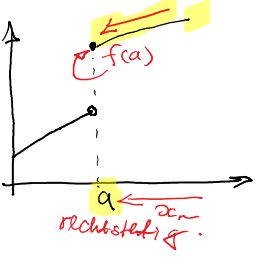 f(a)
a
xₙ
rechtsstetig.